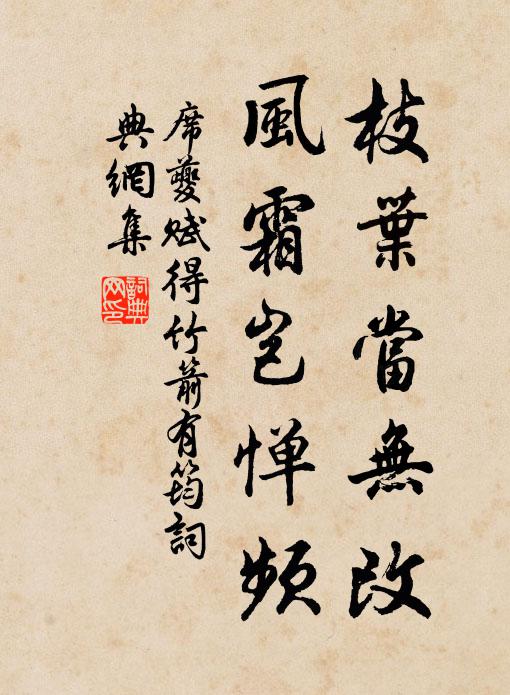 枝葉當無改
風霜豈惮頻
席夔赋得竹箭有筠詞
典網集
詞典
网印